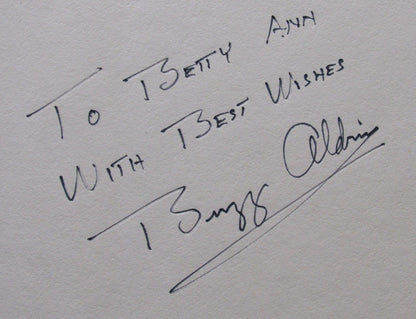 To Betty Ann
With Best Wishes
Buzz Aldrin